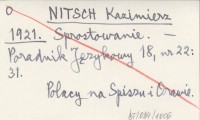 NITSCH Kazimierz
1921. Sprostowanie. —
Poradnik Językowy 18, nr 22:
31.
Polacy na Spiszu i Orawie.